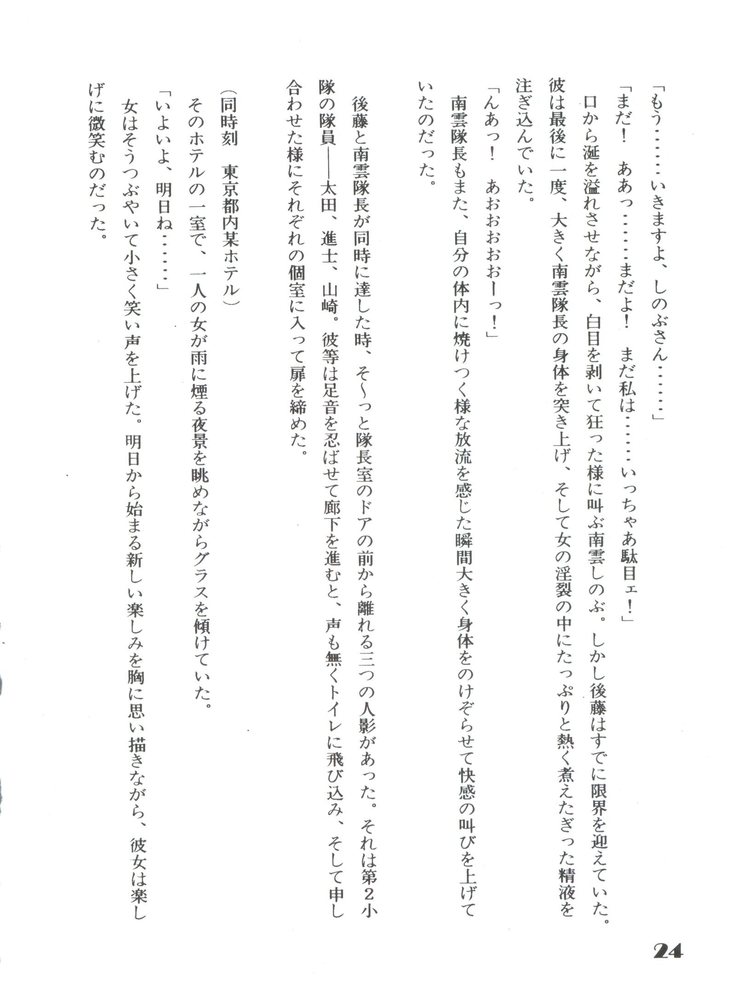 「もう……いきますよ、しのぶさん……」
「まだ！　ああっ……まだよ！　まだ私は……いっちゃあ駄目ェ！」
　口から涎を溢れさせながら、白目を剥いて狂った様に叫ぶ南雲しのぶ。しかし後藤はすでに限界を迎えていた。
彼は最後に一度、大きく南雲隊長の身体を突き上げ、そして女の淫裂の中にたっぷりと熱く煮えたぎった精液を
注ぎ込んでいた。
「んあっ！　あおおおおおーっ！」
　南雲隊長もまた、自分の体内に焼けつく様な放流を感じた瞬間大きく身体をのけぞらせて快感の叫びを上げて
いたのだった。
　後藤と南雲隊長が同時に達した時、そ〜っと隊長室のドアの前から離れる三つの人影があった。それは第２小
隊の隊員――太田、進士、山崎。彼等は足音を忍ばせて廊下を進むと、声も無くトイレに飛び込み、そして申し
合わせた様にそれぞれの個室に入って扉を締めた。
（同時刻　東京都内某ホテル）
　そのホテルの一室で、一人の女が雨に煙る夜景を眺めながらグラスを傾けていた。
「いよいよ、明日ね……」
　女はそうつぶやいて小さく笑い声を上げた。明日から始まる新しい楽しみを胸に思い描きながら、彼女は楽し
げに微笑むのだった。
24